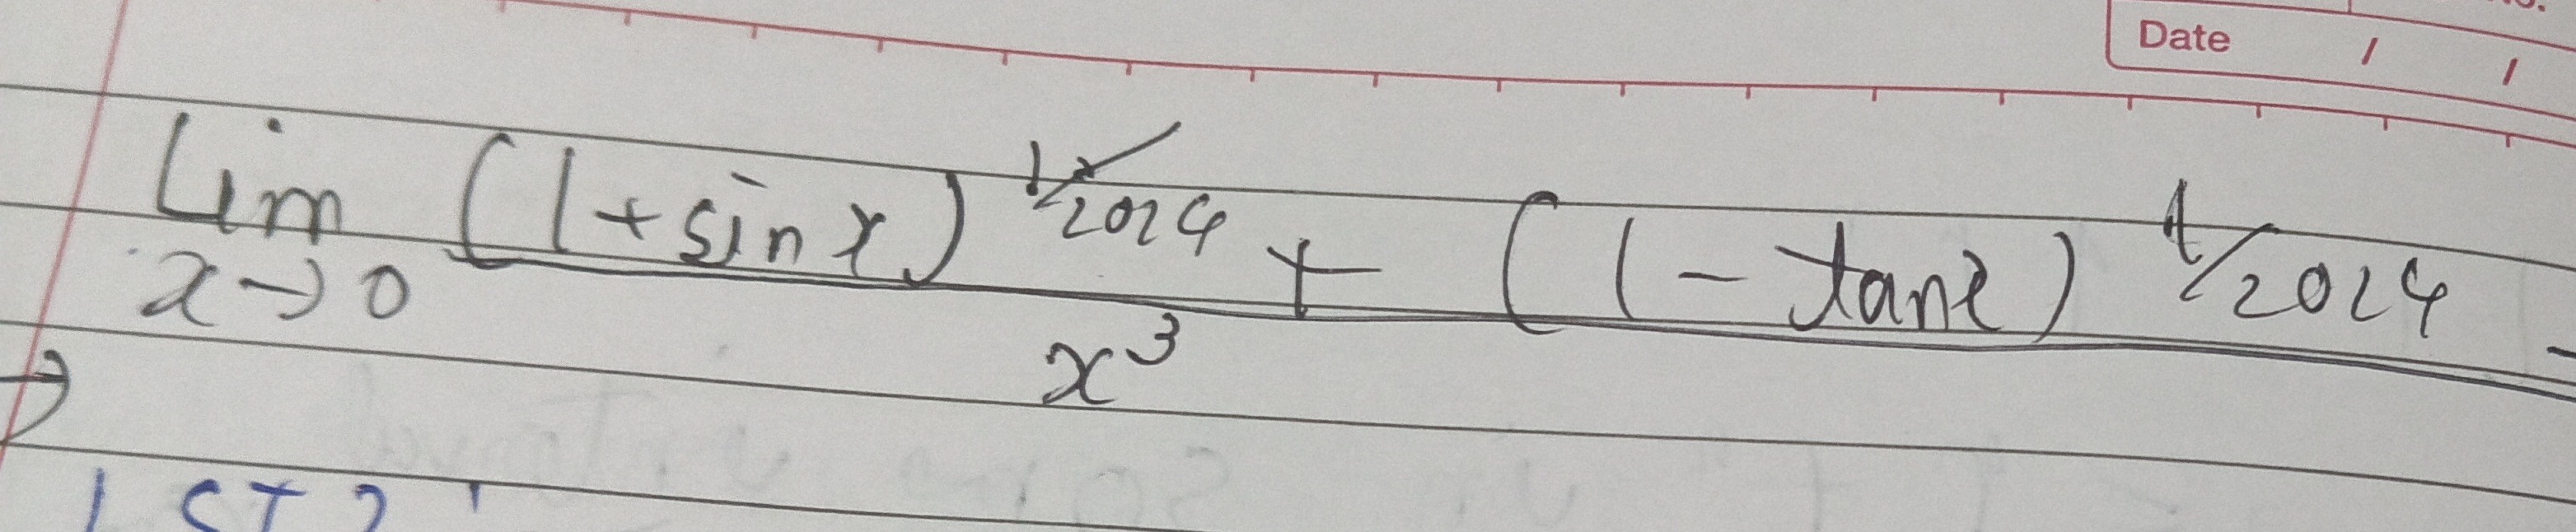 Date / /
Lim x→0 (1+sinx)^1/2024 + (1-tanx)^1/2024 -
x^3
→